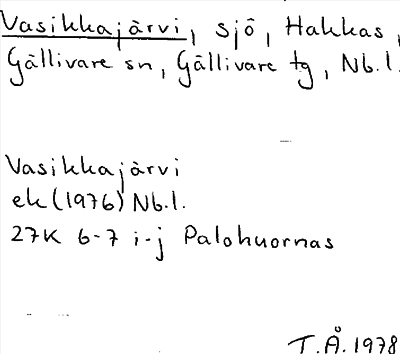 Vasikkajärvi, sjö, Hakkas,
Gällivare sn, Gällivare tg, Nb.l.
Vasikkajärvi
ek (1976) Nb.l.
27K 6-7 i-j Palohuornas
T.Å. 1978